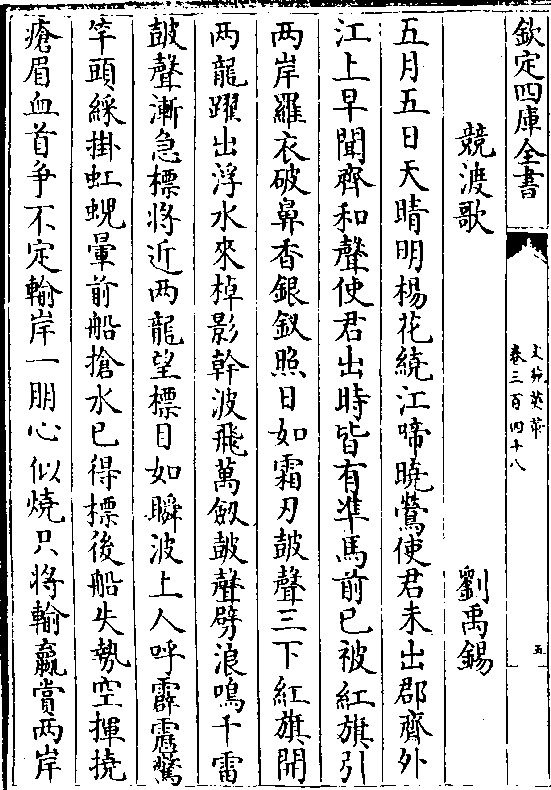 欽定四庫全書
文苑英華
卷三百四十八
五
競渡歌 劉禹錫
五月五日天晴明楊花繞江啼曉鶯使君未出郡齊外
江上早聞齊和聲使君出時皆有準馬前已被紅旗引
兩岸羅衣破鼻香銀釵照日如霜刃皷聲三下紅旗開
两龍躍出浮水來棹影斡波飛萬劔皷聲劈浪鳴千雷
皷聲漸急標將近两龍望標目如瞬波上人呼霹靂驚
竿頭綵掛虹蜺暈前船搶水已得標後船失勢空揮撓
瘡眉血首爭不定輸岸一朋心似燒只將輸贏賞两岸